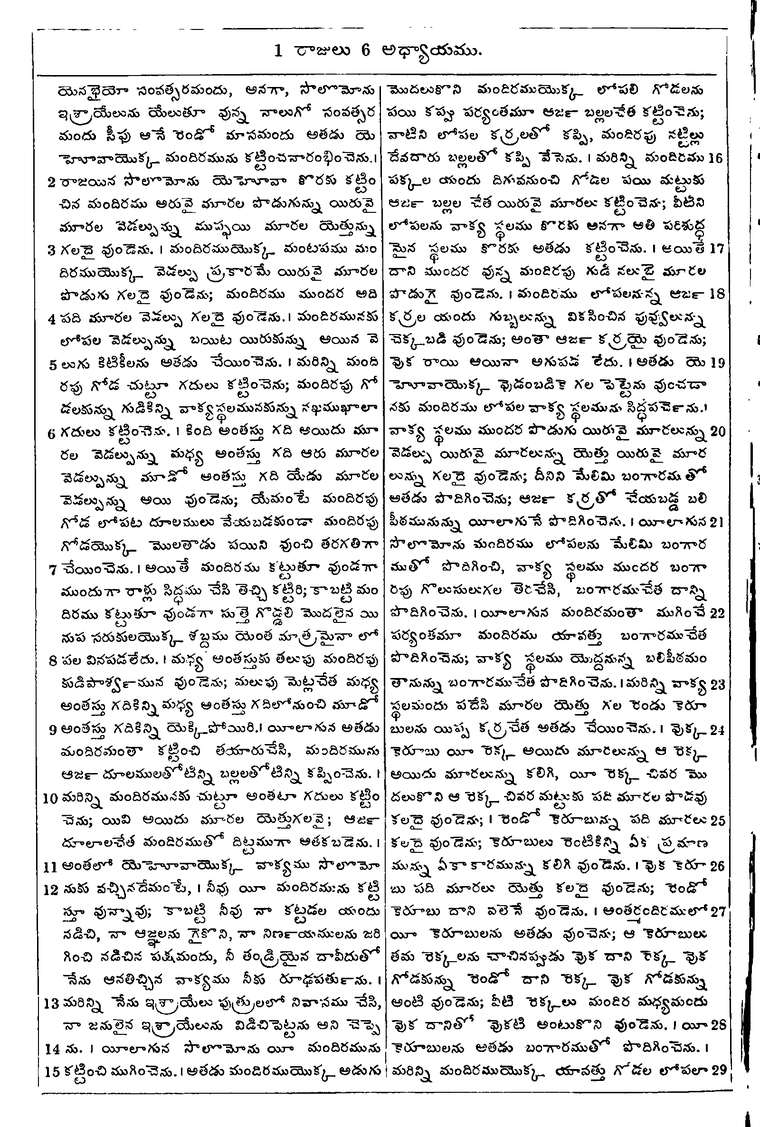 1 రాజులు 6 అధ్యాయము.
యెనభైయో సంవత్సరమందు, అనగా, సొలొమోను
ఇశ్రాయేలును యేలుతూ వున్న నాలుగో సంవత్సర
మందు సీపు అనే రెండో మాసమందు అతడు యె
హోవాయొక్క మందిరమును కట్టించనారంభించెను.।
2 రాజయిన సొలొమోను యెహోవా కొరకు కట్టిం
చిన మందిరము అరువై మూరల పొడుగున్ను యిరువై
మూరల వెడల్పున్ను ముప్ఫయి మూరల యెత్తున్ను
3 గలదై వుండెను. । మందిరముయొక్క మంటపము మం
దిరముయొక్క వెడల్పు ప్రకారమే యిరువై మూరల
పొడుగు గలదై వుండెను; మందిరము ముందర అది
4 పది మూరల వెడల్పు గలదై వుండెను. । మందిరమునకు
లోపల వెడల్పున్ను బయిట యిరుకున్ను అయిన వె
5 లుగు కిటికీలను అతడు చేయించెను. । మరిన్ని మంది
రపు గోడ చుట్టూ గదులు కట్టించెను; మందిరపు గో
డలకున్ను గుడికిన్ని వాక్యస్థలమునకున్ను నఖముఖాలా
6 గదులు కట్టించెను. । కింది అంతస్తు గది అయిదు మూ
రల వెడల్పున్ను మధ్య అంతస్తు గది ఆరు మూరల
వెడల్పున్ను మూడో అంతస్తు గది యేడు మూరల
వెడల్పున్ను అయి వుండెను; యేమంటే మందిరపు
గోడ లోపట దూలములు వేయబడకుండా మందిరపు
గోడయొక్క మొలతాడు పయిని వుంచి తరగతిగా
7 చేయించెను. । అయితే మందిరము కట్టుతూ వుండగా
ముందుగా రాళ్లు సిద్ధము చేసి తెచ్చి కట్టిరి; కాబట్టి మం
దిరము కట్టుతూ వుండగా సుత్తె గొడ్డలి మొదలైన యి
నుప సరుకులయొక్క శబ్దము యెంత మాత్రమైనా లో
8 పల వినపడలేదు. । మధ్య అంతస్తుకు తలుపు మందిరపు
కుడిపార్శ్వమున వుండెను; మలుపు మెట్లచేత మధ్య
అంతస్తు గదికిన్ని మధ్య అంతస్తు గదిలోనుంచి మూడో
9 అంతస్తు గదికిన్ని యెక్కిపోయిరి. । యీలాగున అతడు
మందిరమంతా కట్టించి తయారుచేసి, మందిరమును
ఆర్జ దూలములతోటిన్ని బల్లలతోటిన్ని కప్పించెను. ।
10 మరిన్ని మందిరమునకు చుట్టూ అంతటా గదులు కట్టిం
చెను; యివి అయిదు మూరల యెత్తుగలవై; ఆర్జ
దూలాలచేత మందిరముతో దిట్టముగా అతకబడెను. ।
11 అంతలో యెహోవాయొక్క వాక్యము సొలొమో
12 నుకు వచ్చినదేమంటే, । నీవు యీ మందిరమును కట్టి
స్తూ వున్నావు; కాబట్టి నీవు నా కట్టడల యందు
నడిచి, నా ఆజ్ఞలను గైకొని, నా నిర్ణయములను జరి
గించి నడిచిన పక్షమందు, నీ తండ్రియైన దావీదుతో
నేను ఆనతిచ్చిన వాక్యము నీకు రూఢపర్తును. ।
13 మరిన్ని నేను ఇశ్రాయేలు పుత్రులలో నివాసము చేసి,
నా జనులైన ఇశ్రాయేలును విడిచిపెట్టను అని చెప్పె
14 ను. । యీలాగున సొలొమోను యీ మందిరమును
15 కట్టించి ముగించెను. । అతడు మందిరముయొక్క అడుగు
మొదలుకొని మందిరముయొక్క లోపలి గోడలను
పయి కప్పు పర్యంతమూ ఆర్జ బల్లలచేత కట్టించెను;
వాటిని లోపల కర్రలతో కప్పి, మందిరపు నట్టిల్లు
దేవదారు బల్లలతో కప్పి వేసెను. । మరిన్ని మందిరము 16
పక్కల యందు దిగువనుంచి గోడల పయి మట్టుకు
ఆర్జ బల్లల చేత యిరువై మూరలు కట్టించెను; వీటిని
లోపలను వాక్య స్థలము కొరకు అనగా అతి పరిశుద్ధ
మైన స్థలము కొరకు అతడు కట్టించెను. । అయితే 17
దాని ముందర వున్న మందిరపు గుడి నలుబై మూరల
పొడుగై వుండెను. । మందిరము లోపలనున్న ఆర్జ 18
కర్రల యందు గుబ్బలున్ను వికసించిన పువ్వులున్ను
చెక్కబడి వుండెను; అంతా ఆర్జ కర్రయై వుండెను;
వుక రాయి అయినా అగుపడ లేదు. । అతడు యె 19
హోవాయొక్క వుడంబడికె గల పెట్టెను వుంచడా
నకు మందిరము లోపల వాక్య స్థలమును సిద్ధపర్చెను.।
వాక్య స్థలము ముందర పొడుగు యిరువై మూరలున్ను 20
వెడల్పు యిరువై మూరలున్ను యెత్తు యిరువై మూర
లున్ను గలదై వుండెను; దీనిని మేలిమి బంగారముతో
అతడు పొదిగించెను; ఆర్జ కర్రతో చేయబడ్డ బలి
పీఠమునున్ను యీలాగునే పొదిగించెను. । యీలాగున 21
సొలొమోను మందిరము లోపలను మేలిమి బంగార
ముతో పొదిగించి, వాక్య స్థలము ముందర బంగా
రపు గొలుసులుగల తెరచేసి, బంగారముచేత దాన్ని
పొదిగించెను. । యీలాగున మందిరమంతా ముగించే 22
పర్యంతమూ మందిరము యావత్తు బంగారముచేత
పొదిగించెను; వాక్య స్థలము యొద్దనున్న బలిపీఠమం
తానున్ను బంగారముచేత పొదిగించెను. । మరిన్ని వాక్య 23
స్థలమందు పదేసి మూరల యెత్తు గల రెండు కెరూ
బులను యిప్ప కర్రచేత అతడు చేయించెను. । వుక్కొ 24
కెరూబు యీ రెక్క అయిదు మూరలున్ను ఆ రెక్క
అయిదు మూరలున్ను కలిగి, యీ రెక్క చివర మొ
దలుకొని ఆ రెక్క చివర మట్టుకు పది మూరల పొడవు
కలదై వుండెను; । రెండో కెరూబున్ను పది మూరలు 25
కలదై వుండెను; కెరూబులు రెంటికిన్ని ఏక ప్రమాణ
మున్ను ఏకాకారమున్ను కలిగి వుండెను. । వుక కెరూ 26
బు పది మూరలు యెత్తు కలదై వుండెను; రెండో
కెరూబు దాని వలెనే వుండెను. । అంతర్మందిరములో 27
యీ కెరూబులను అతడు వుంచెను; ఆ కెరూబులు
తమ రెక్కలను చాచినప్పుడు వుక దాని రెక్క వుక
గోడకున్ను రెండో దాని రెక్క వుక గోడకున్ను
అంటి వుండెను; వీటి రెక్కలు మందిర మధ్యమందు
వుక దానితో వుకటి అంటుకొని వుండెను. । యీ 28
కెరూబులను అతడు బంగారముతో పొదిగించెను. ।
మరిన్ని మందిరముయొక్క యావత్తు గోడల లోపలా 29